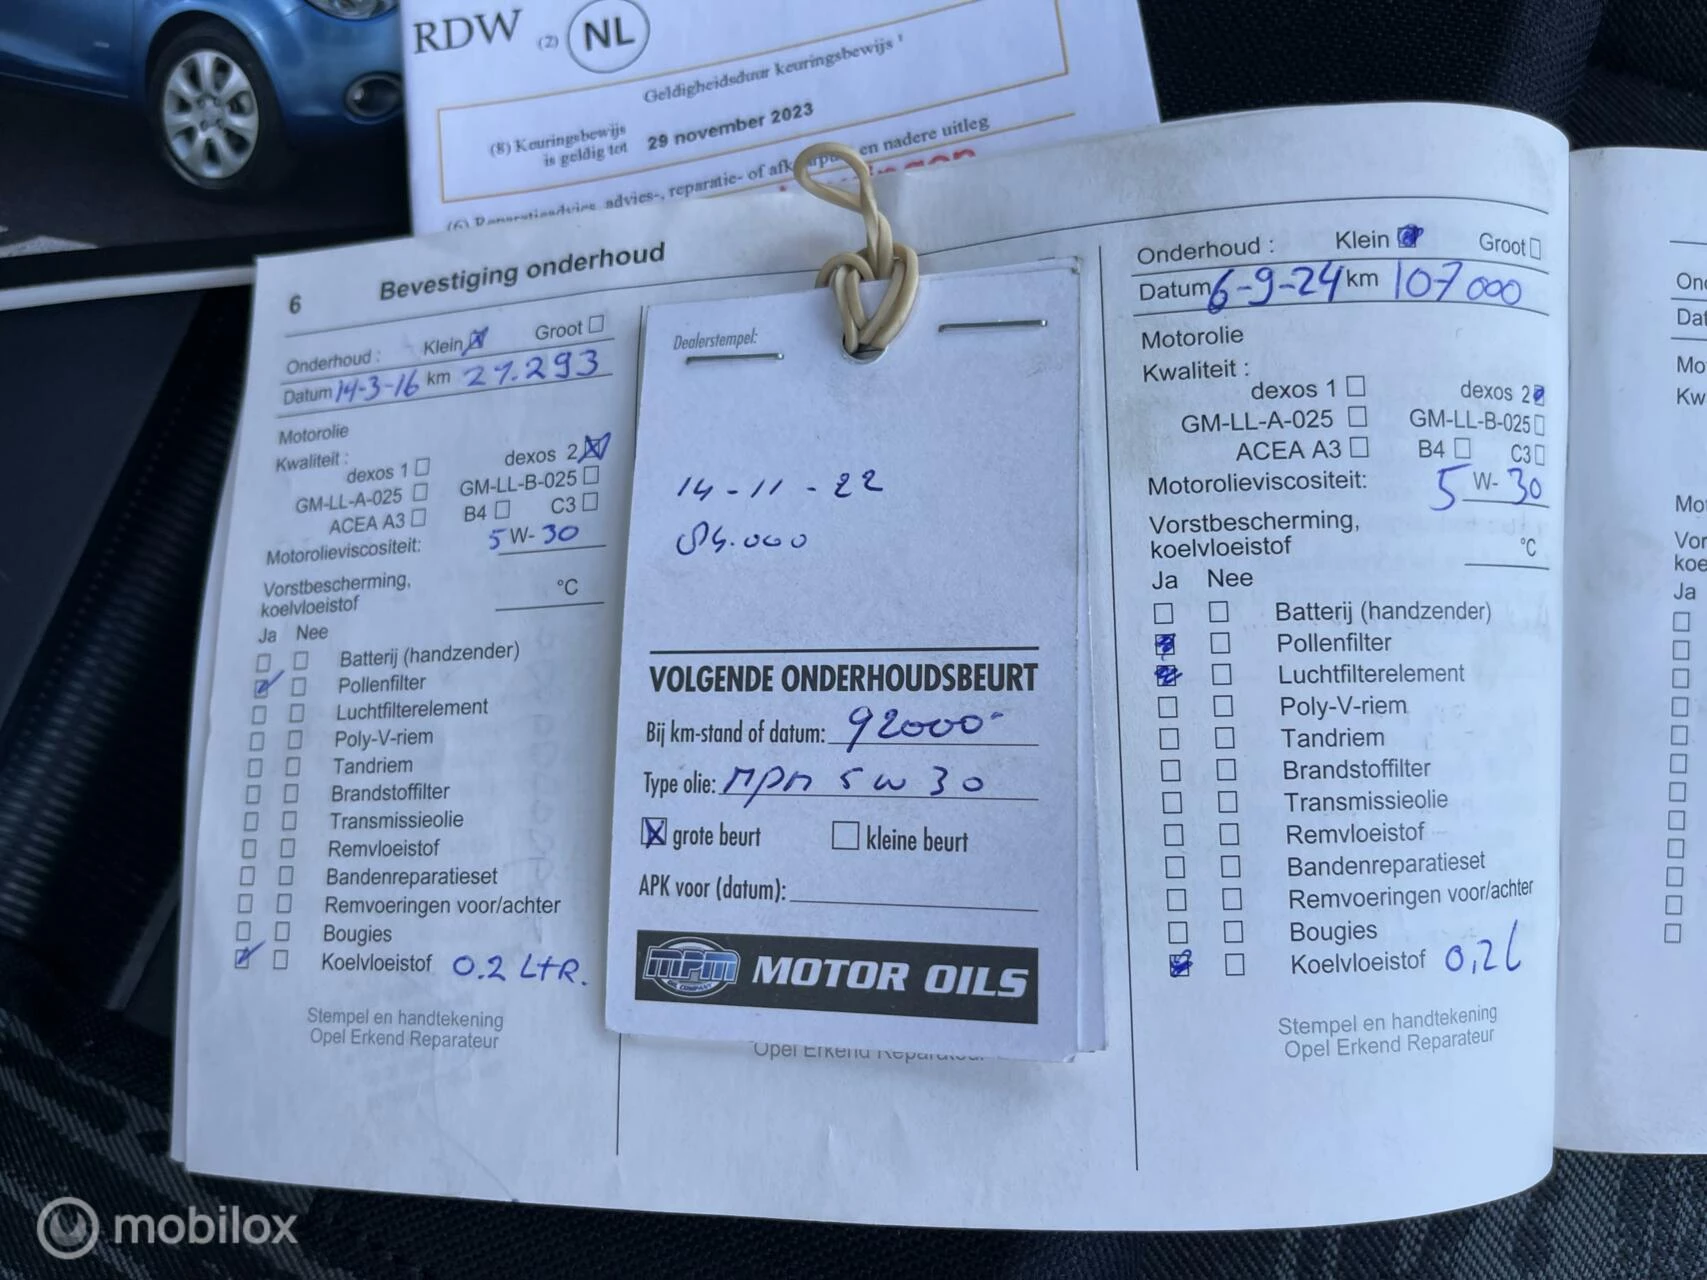 RDW (2) NL
Geldigheidsduur keuringsbewijs ¹
(8) Keuringsbewijs
is geldig tot 29 november 2023
en nadere uitleg
6 Bevestiging onderhoud
Onderhoud : Klein Groot
Datum 14-3-16 km 27.293
Motorolie
Kwaliteit :
dexos 1 dexos 2
GM-LL-A-025 GM-LL-B-025
ACEA A3 B4 C3
Motorolieviscositeit: 5 W- 30
Vorstbescherming,
koelvloeistof °C
Ja Nee
Batterij (handzender)
Pollenfilter
Luchtfilterelement
Poly-V-riem
Tandriem
Brandstoffilter
Transmissieolie
Remvloeistof
Bandenreparatieset
Remvoeringen voor/achter
Bougies
Koelvloeistof 0.2 LTR.
Stempel en handtekening
Opel Erkend Reparateur
Dealerstempel:
14-11-22
84.000
VOLGENDE ONDERHOUDSBEURT
Bij km-stand of datum: 92000-
Type olie: MPM 5W30
grote beurt kleine beurt
APK voor (datum):
mpm OIL COMPANY MOTOR OILS
Opel Erkend Reparateur
Onderhoud : Klein Groot
Datum 6-9-24 km 107000
Motorolie
Kwaliteit :
dexos 1 dexos 2
GM-LL-A-025 GM-LL-B-025
ACEA A3 B4 C3
Motorolieviscositeit: 5 W- 30
Vorstbescherming,
koelvloeistof °C
Ja Nee
Batterij (handzender)
Pollenfilter
Luchtfilterelement
Poly-V-riem
Tandriem
Brandstoffilter
Transmissieolie
Remvloeistof
Bandenreparatieset
Remvoeringen voor/achter
Bougies
Koelvloeistof 0,2l
Stempel en handtekening
Opel Erkend Reparateur
Ja
mobilox